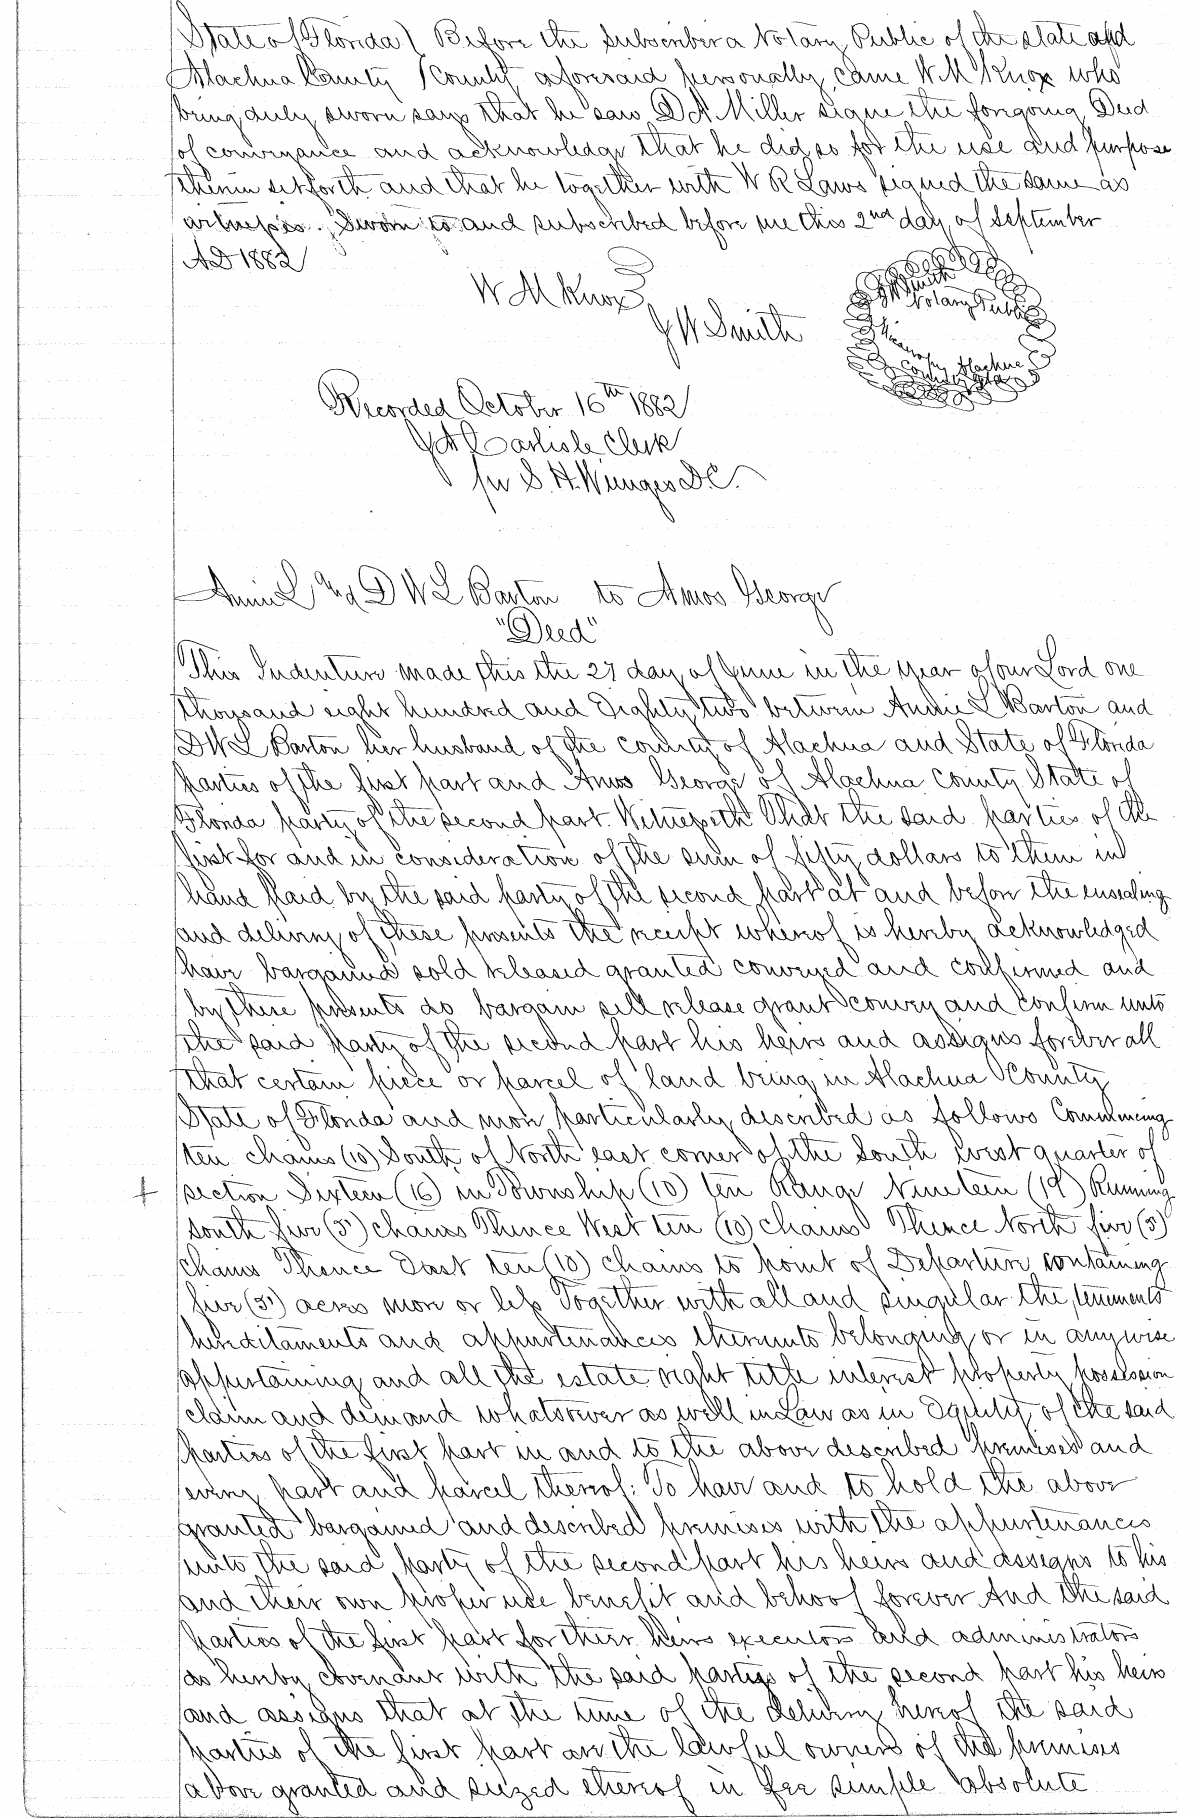 State of Florida ( Before the subscriber a Notary Public of the state and
Alachua County ( County aforesaid personally came W M Knox who
being duly sworn says that he saw D A Miller signe the forgoing Deed
of conveyance and acknowledge that he did so for the use and purpose
therein set forth and that he together with W R Laws signed the same as
witnesses. Sworn to and subscribed before me this 2nd day of September
AD 1882
W M Knox
J W Smith
J W Smith
Notary Public
Micanopy Alachua
County Fla
Recorded October 16th 1882
J A Carlisle Clerk
per S. H. Wienges D.C.
Annie L and D W L Barton to Amos George
"Deed"
This Indenture made this the 27 day of June in the year of our Lord one
thousand eight hundred and Eighty two between Annie L Barton and
D W L Barton her husband of the county of Alachua and State of Florida
parties of the first part and Amos George of Alachua County State of
Florida party of the second part. Witnesseth That the said parties of the
first for and in consideration of the sum of fifty dollars to them in
hand paid by the said party of the second part at and before the ensealing
and delivery of these presents the receipt whereof is hereby acknowledged
have bargained sold released granted conveyed and confirmed and
by these presents do bargain sell release grant convey and confirm unto
the said party of the second part his heirs and assigns forever all
that certain piece or parcel of land being in Alachua County
State of Florida and more particularly described as follows Commencing
ten chains (10) South of North east corner of the South West quarter of
+ section Sixteen (16) in Township (10) ten Range Nineteen (19) Running
south five (5) chains Thence West ten (10) chains Thence North five (5)
chains Thence East ten (10) chains to point of Departure containing
five (5) acres more or less Together with all and singular the tenements
hereditaments and appurtenances thereunto belonging or in anywise
appertaining and all the estate right title interest property possession
claim and demand whatsoever as well in Law as in Equity of the said
parties of the first part in and to the above described premises and
every part and parcel thereof: To have and to hold the above
granted bargained and described premises with the appurtenances
unto the said party of the second part his heirs and assigns to his
and their own proper use benefit and behoof forever And the said
parties of the first part for their heirs executors and administrators
do hereby covenant with the said parties of the second part his heirs
and assigns that at the time of the delivery hereof the said
parties of the first part are the lawful owners of the premises
above granted and seized thereof in fee simple absolute